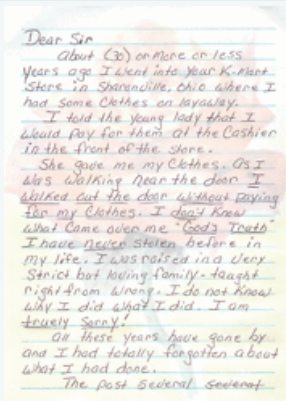 Dear Sir
About (30) or more or less
years ago I went into your K-Mart
Store in Sharonville, Ohio where I
had some Clothes on layaway.
I told the young lady that I
would pay for them at the Cashier
in the front of the store.
She gave me my Clothes. As I
was walking near the door I
walked out the door without paying
for my Clothes. I don't know
what came over me "God's Truth"
I have never stolen before in
my life. I was raised in a very
Strict but loving family-taught
right from wrong. I do not know
why I did what I did. I am
truely sorry!
All these years have gone by
and I had totally forgotten about
what I had done.
The past several several